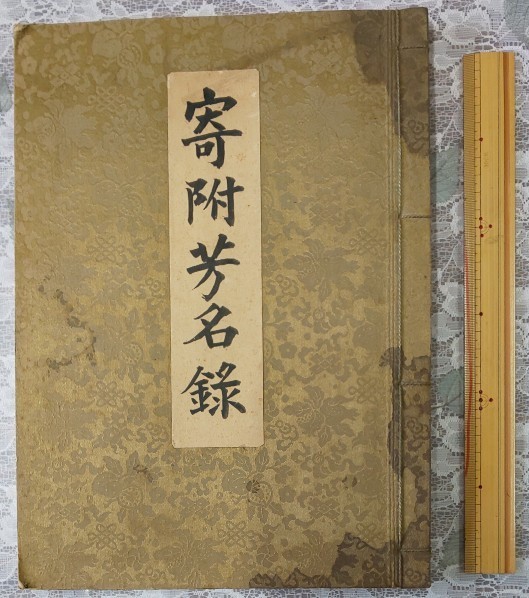 寄附芳名錄